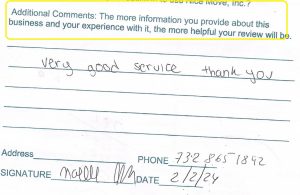 Nice Move, Inc.?
Additional Comments: The more information you provide about this
business and your experience with it, the more helpful your review will be.
very good service thank you
Address
PHONE 732 865 1842
SIGNATURE DATE 2/2/24